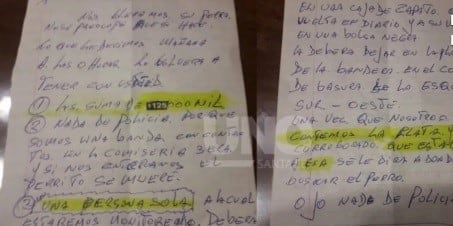 NOS LLEVAMOS SU PERRO.
LO QUE LE PEDIMOS
A LAS 04:00 AM LO VUELVA A
TENER CON USTEDES
① LA SUMA DE $125.000 MIL
② NADA DE POLICIA. PORQUE
SOMOS UNA BANDA CON CONTAC
TOS. EN LA COMISERIA 3ERA
Y SI NOS ENTERAMOS EL
PERRITO SE MUERE.
③ UNA PERSONA SOLA A LA CUAL
ESTAREMOS MONITOREANDO. DEBERA
EN UNA CAJA DE ZAPATO
VUELTA EN DIARIO, Y A SU
EN UNA BOLSA NEGRA
LA DEBERA DEJAR EN LA PL
DE LA BANDERA. EN EL CO
DE BASURA DE LA ESQ
SUR - OESTE.
UNA VEZ QUE NOSOTRO
CONTEMOS LA PLATA Y
CORROBORADO. QUE ESTA
A ELLA SE LE DIRA A DOND
BUSCAR EL PERRO.
OJO NADA DE POLICIA
SANTA